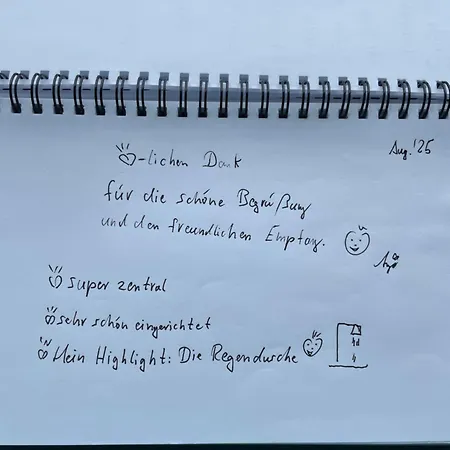 Aug. '25
-lichen Dank
für die schöne Begrüßung
und den freundlichen Empfang.
super zentral
sehr schön eingerichtet
Mein Highlight: Die Regendusche